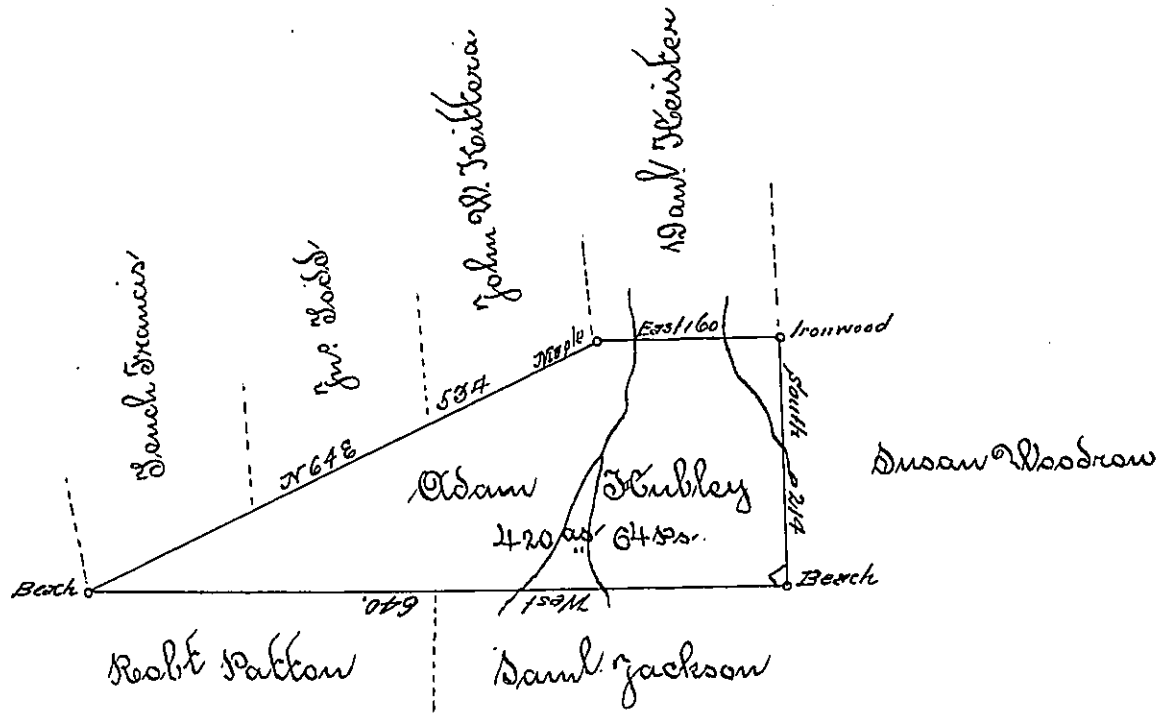 Tench Francis
Jno. Todd
John W. Kittera
Danl. Heister
Maple
East 160
Ironwood
N 64 E
534
South
214
Susan Woodrow
Adam Hubley
420 as 64 ps.
Beech
640.
West
Beech
Robt Patton
Saml. Jackson